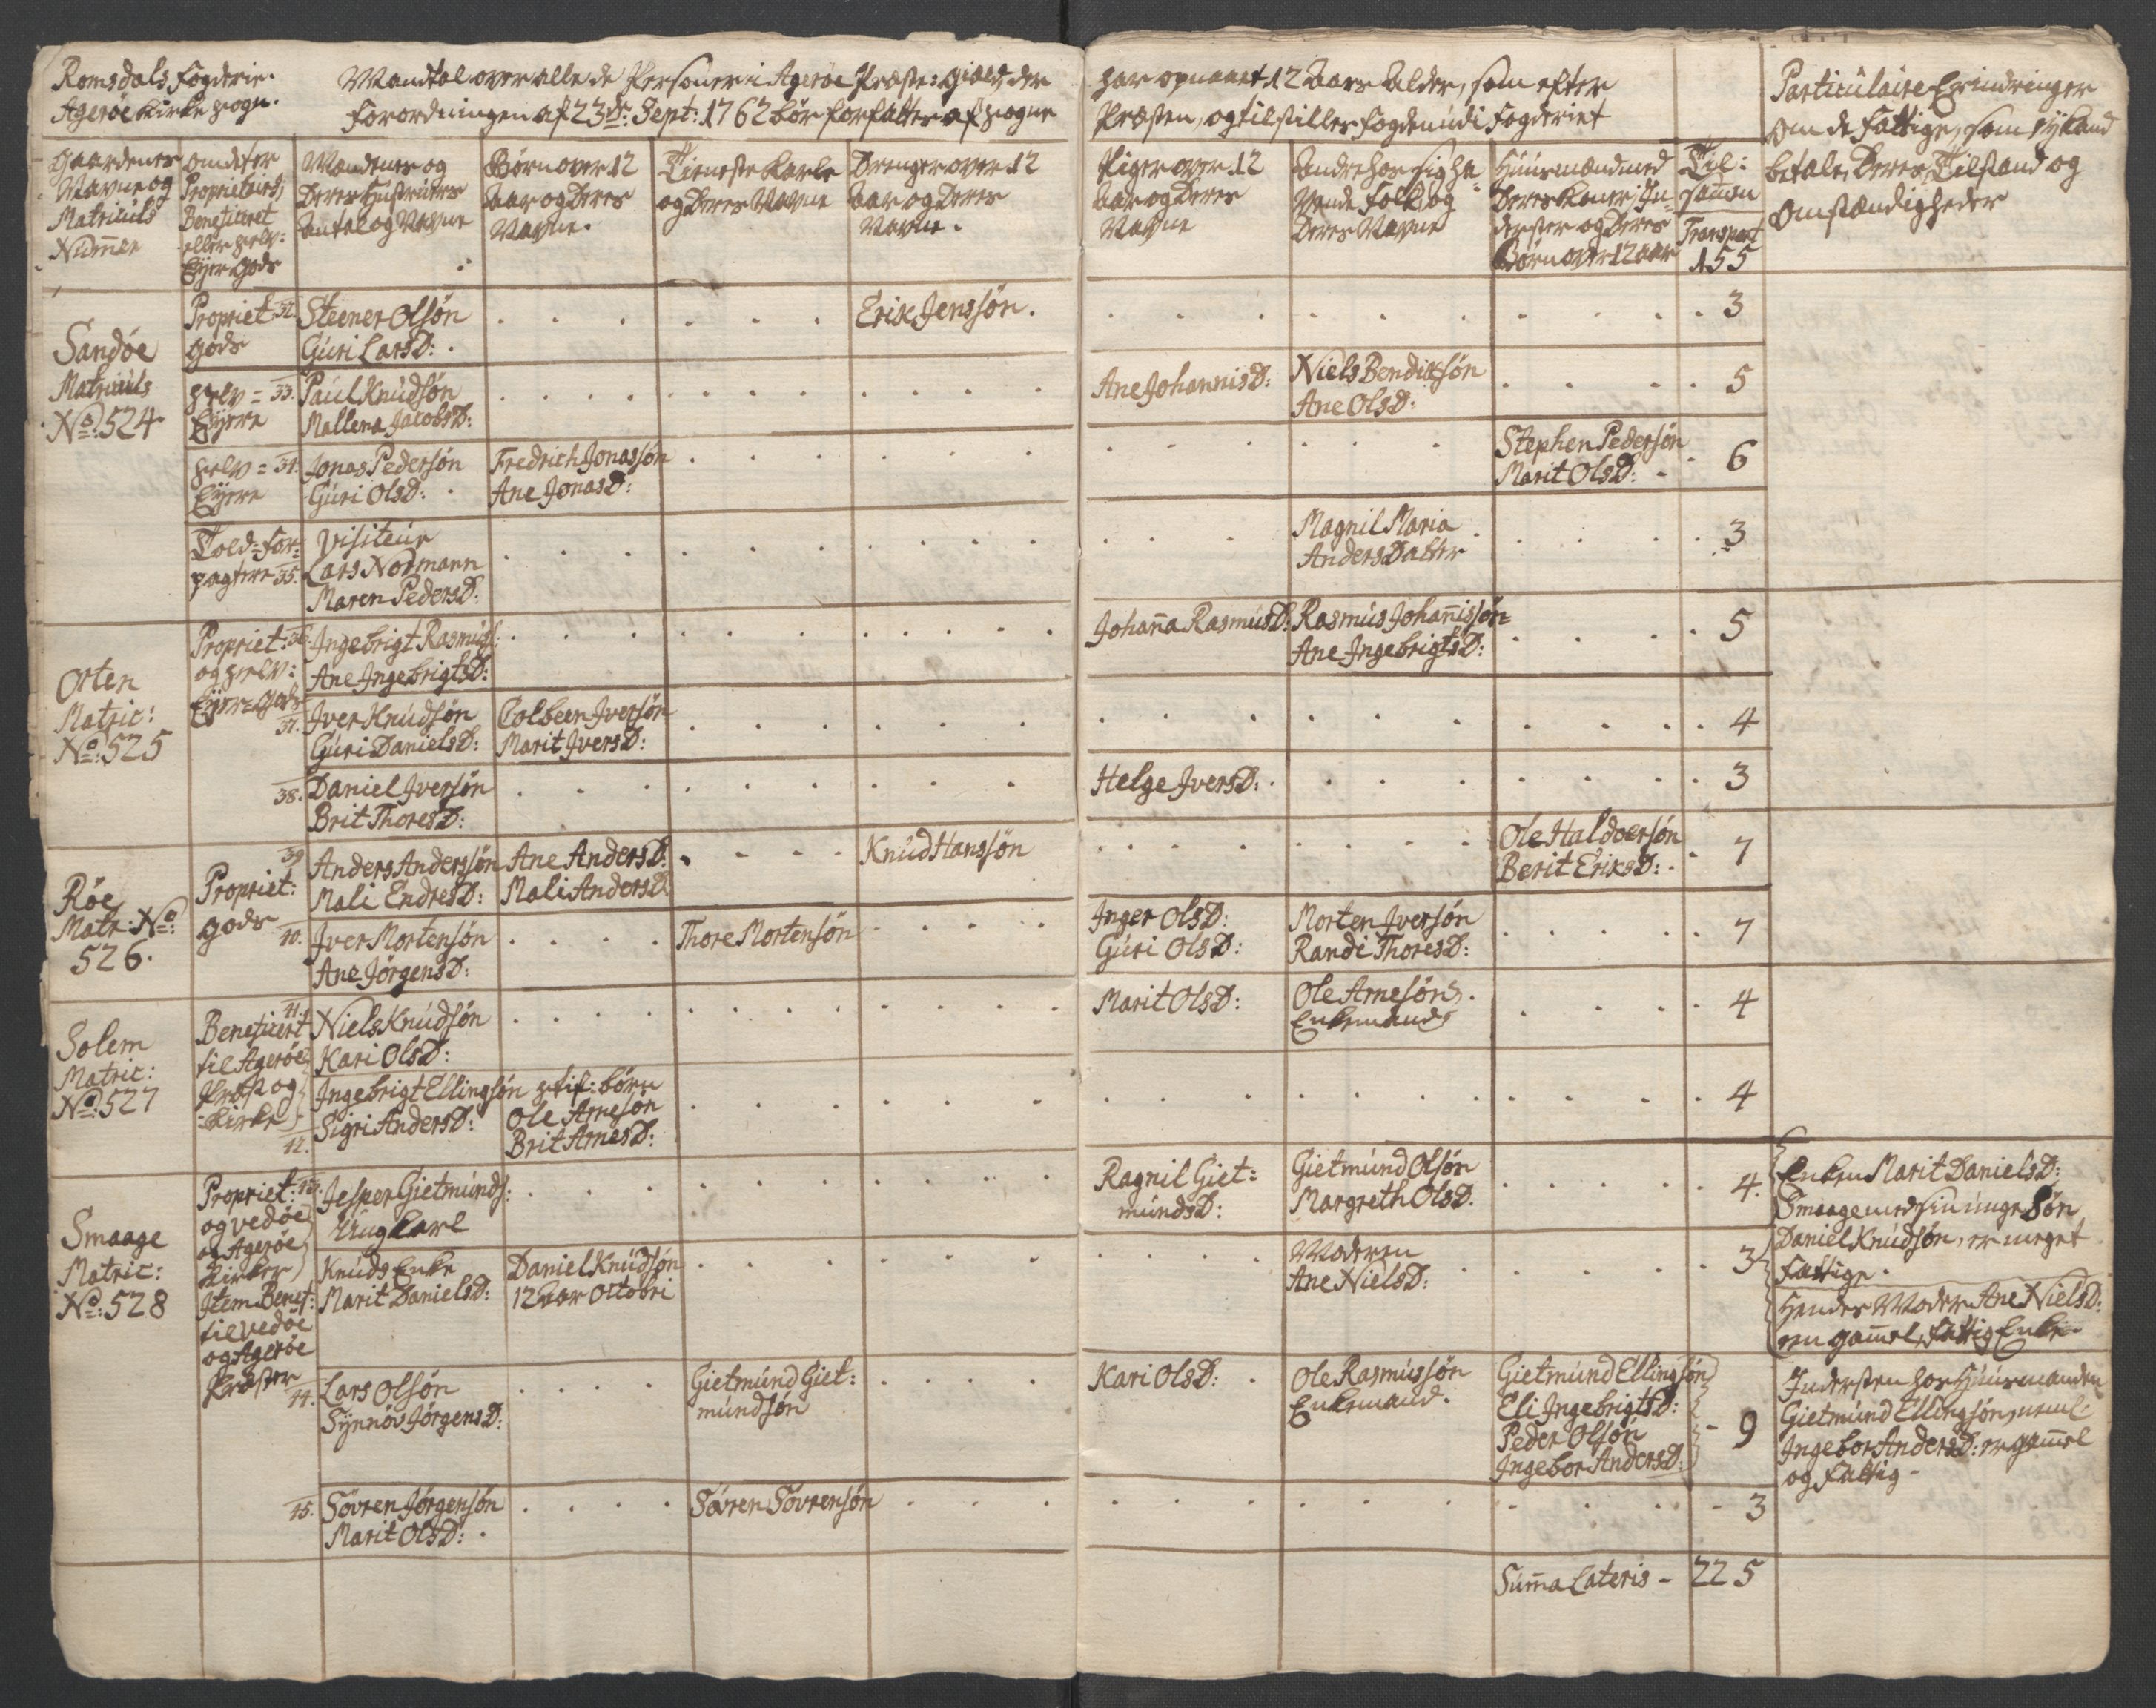 Romsdals Fogderie.
Agerøe Kirke Sogn.
Mandtal over alle de Personer i Agerøe Præste: Gield, der
Forordningen af 23de: Sept: 1762 bør forfattes af Sogne
har opnaaet 12 Aars Alder, som efter
Præsten, og tilstilles Fogden udi Fogderiet
Particulaire Erindringer
om de Fattige, som
betale, Deres Tilstand og
Omstændigheder
Gaardenes
Navne og
Matriculs
Nummer
Om det er
Proprietairs,
Beneficeret
eller Selv:
Eyer Gods
Mændenes og
Deres Hustruers
Antal og Navne
Børn over 12
Aar og Deres
Navne.
Tieneste Karle
og Deres Navne
Drenge over 12
Aar og Deres
Navne.
Piger over 12
Aar og Deres
Navne
Andre hos sig ha-
vende Folk, og
Deres Navne
Huusmænd med
Deres Koner, In-
derster og Deres
Børn over 12 aar
Til:
sammen
Transport
155
Sandøe
Matriculs
No: 524
Propriet:
Gods
32.
Steener Olsøn
Guri LarsD:
Erik Jenssøn.
3
Selv =
Eyere
33.
Paul Knudsøn
Mallena JacobsD:
Ane JohannisD:
Niels Bendixsøn
Ane OlsD:
5
Selv =
Eyere
34.
Jonas Pedersøn
Guri OlsD:
Fredrich Jonassøn
Ane JonasD:
Stephen Pedersøn
Marit OlsD:
6
Told=For-
pagtere
35.
Visiteur
Lars Normann
Maren PedersD:
Magnil Maria
Anders Datter
3
Orten
Matric:
No: 525
Propriet:
og Selv:
Eyer=Gods
36.
Ingebrigt Rasmus:
Ane IngebrigtsD:
Johanna RasmusD:
Rasmus Johannissøn
Ane IngebrigtsD:
5
37.
Iver Knudsøn
Guri DanielsD:
Colbeen Iversøn
Marit IversD:
4
38.
Daniel Iversøn
Brit ThoresD:
Helge IversD:
3
Røe
Matr: No:
526.
Propriet:
Gods
39
Anders Anderssøn
Mali EndresD:
Ane AndersD:
Mali AndersD
Knud Hanssøn
Ole Haldoersøn
Berit EriksD:
7
40.
Iver Mortensøn
Ane JørgensD:
Thore Mortensøn
Inger OlsD:
Guri OlsD:
Morten Iversøn
Randi ThoresD:
7
Solem
Matric:
No: 527
Beneficert
til Agerøe
Præst og
Kirke
41.
Niels Knudsøn
Kari OlsD:
Marit OlsD:
Ole Arnesøn
Enkemand
4
42.
Ingebrigt Ellingsøn
Sigri AndersD:
Stif: børn
Ole Arnesøn
Brit ArnesD:
4
Smaage
Matric:
No: 528
Propriet:
og Vedøe
og Agerøe
Kirker
Item Benef:
til Vedøe
og Agerøe
Præster
43.
Jesper Gietmunds:
Ungkarl
Ragnil Giet:
mundsD:
Gietmund Olsøn
Margreth OlsD.
4.
Enken Marit DanielsD:
Smaage med sin unge Søn
Daniel Knudsøn, er meget
Fattige.
Knuds Enke
Marit DanielsD:
Daniel Knudsøn
12 Aar Octobri
Moderen
Ane NielsD:
3
Hendes Moder Ane NielsD:
en gammel, fattig Enke.
44.
Lars Olsøn
Synnøv JørgensD:
Gietmund Giet:
mundsøn
Kari OlsD:
Ole Rasmussøn
Enkemand.
Gietmund Ellingsøn
Eli IngebrigtsD:
Peder Olsøn
Ingebor AndersD:
9
Indersten hos Huusmanden
Gietmund Ellingsøn, neml:
Ingebor AndersD: er gammel
og Fattig -
45.
Søvren Jørgensøn
Marit OlsD:
Søvren Søvrensøn
3
Summa Lateris - 225